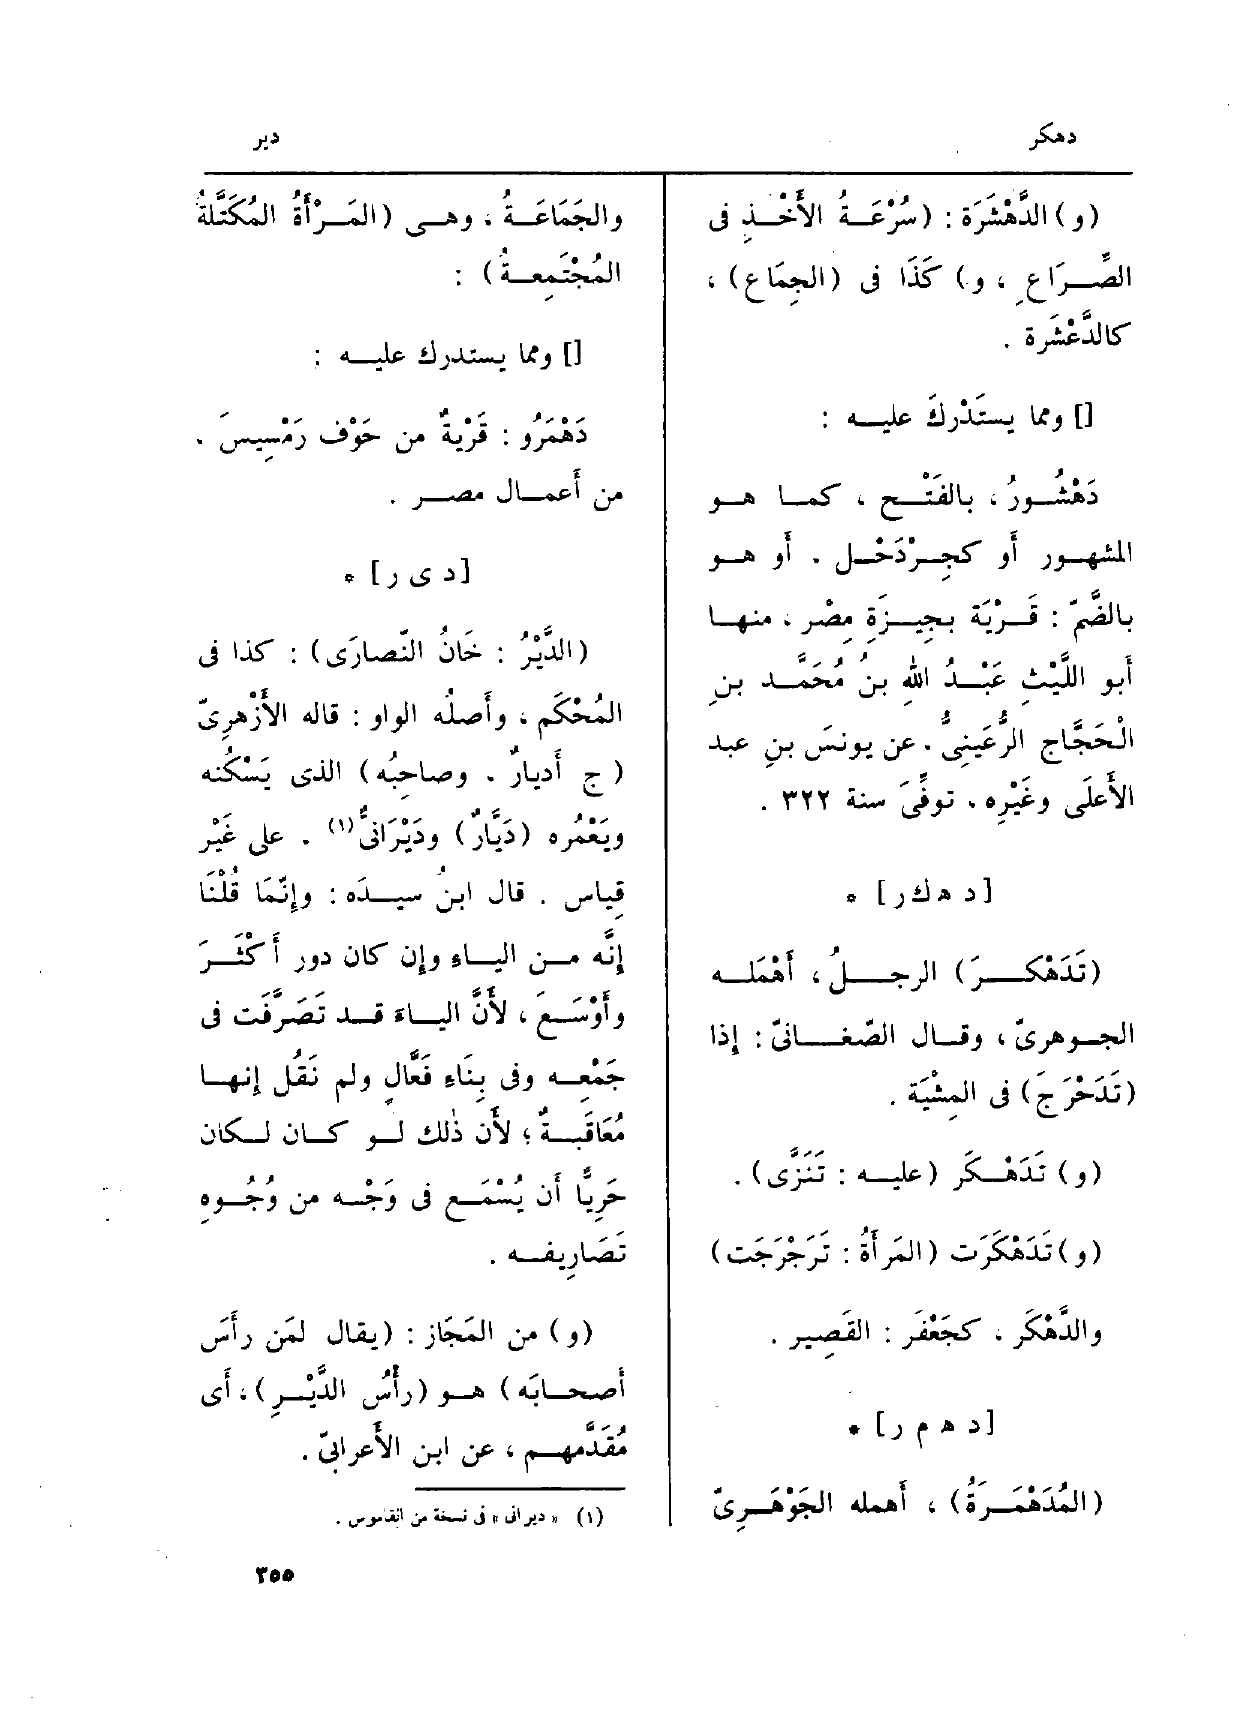 دهكر
دير
(و) الدَّهْشَرَة : (سُرْعَةُ الأَخْذِ فى
الصِّرَاعِ ، و) كَذَا فى (الجِمَاع) ،
كالدَّعْشَرة .
[] ومما يستَدْركَ عليه :
دَهْشُورُ ، بالفَتْح ، كما هو
المشهور أو كجِرْدَحْل . أو هو
بالضَّمّ : قَرْيَة بجِيزَةِ مِصْر ، منها
أبو اللَّيْثِ عَبْدُ اللهِ بنُ مُحَمَّد بنِ
الْحَجَّاج الرُّعَينىُّ . عن يونسَ بنِ عبد
الأَعلَى وغَيْرِه . توفِّىَ سنة ٣٢٢ .
[د ه ك ر] *
(تَدَهْكَرَ) الرجلُ ، أَهْمَله
الجوهرىّ ، وقال الصّغانىّ : إذا
(تَدَحْرَجَ) فى المِشْيَة .
(و) تَدَهْكَر (عليه : تَنَزَّى) .
(و) تَدَهْكَرَت (المَرأَةُ : تَرَجْرَجَت)
والدَّهْكَر ، كجَعْفَر : القَصِير .
[د ه م ر] *
(المُدَهْمَرَةُ) ، أهمله الجَوْهَرِىّ
والجَمَاعَةُ ، وهى (المَرْأَةُ المُكَتَّلَةُ
المُجْتَمِعةُ) :
[] ومما يستدرك عليه :
دَهْمَرُو : قَرْيةٌ من حَوْف رَمْسِيسَ .
من أعمال مصر .
[د ى ر] *
(الدَّيْرُ : خَانُ النّصارَى) : كذا فى
المُحْكَم ، وأَصلُه الواو : قاله الأَزْهرِىّ
( ج أَديارٌ . وصاحِبُه) الذى يَسْكُنه
ويَعْمُره (دَيَّارٌ) ودَيْرَانىٌّ (١) . على غَيْر
قِياس . قال ابنُ سيدَه : وإنّمَا قُلْنَا
إنَّه من الياء وإن كان دور أَكْثَرَ
وأَوْسَعَ ، لأَنَّ الياءَ قد تَصَرَّفَت فى
جَمْعه وفى بِنَاءِ فَعَّالٍ ولم نَقُل إنها
مُعَاقَبةٌ ؛ لأَن ذٰلك لو كان لكان
حَرِيًّا أن يُسْمَع فى وَجْه من وُجُوهِ
تَصَاريفه .
(و) من المَجَاز : (يقال لمَن رأَسَ
أَصحابَه) هو (رأْسُ الدَّيْرِ) ، أى
مُقَدَّمهم ، عن ابن الأَعرابىّ .
(١) « ديرانى » فى نسخة من القاموس .
٣٥٥